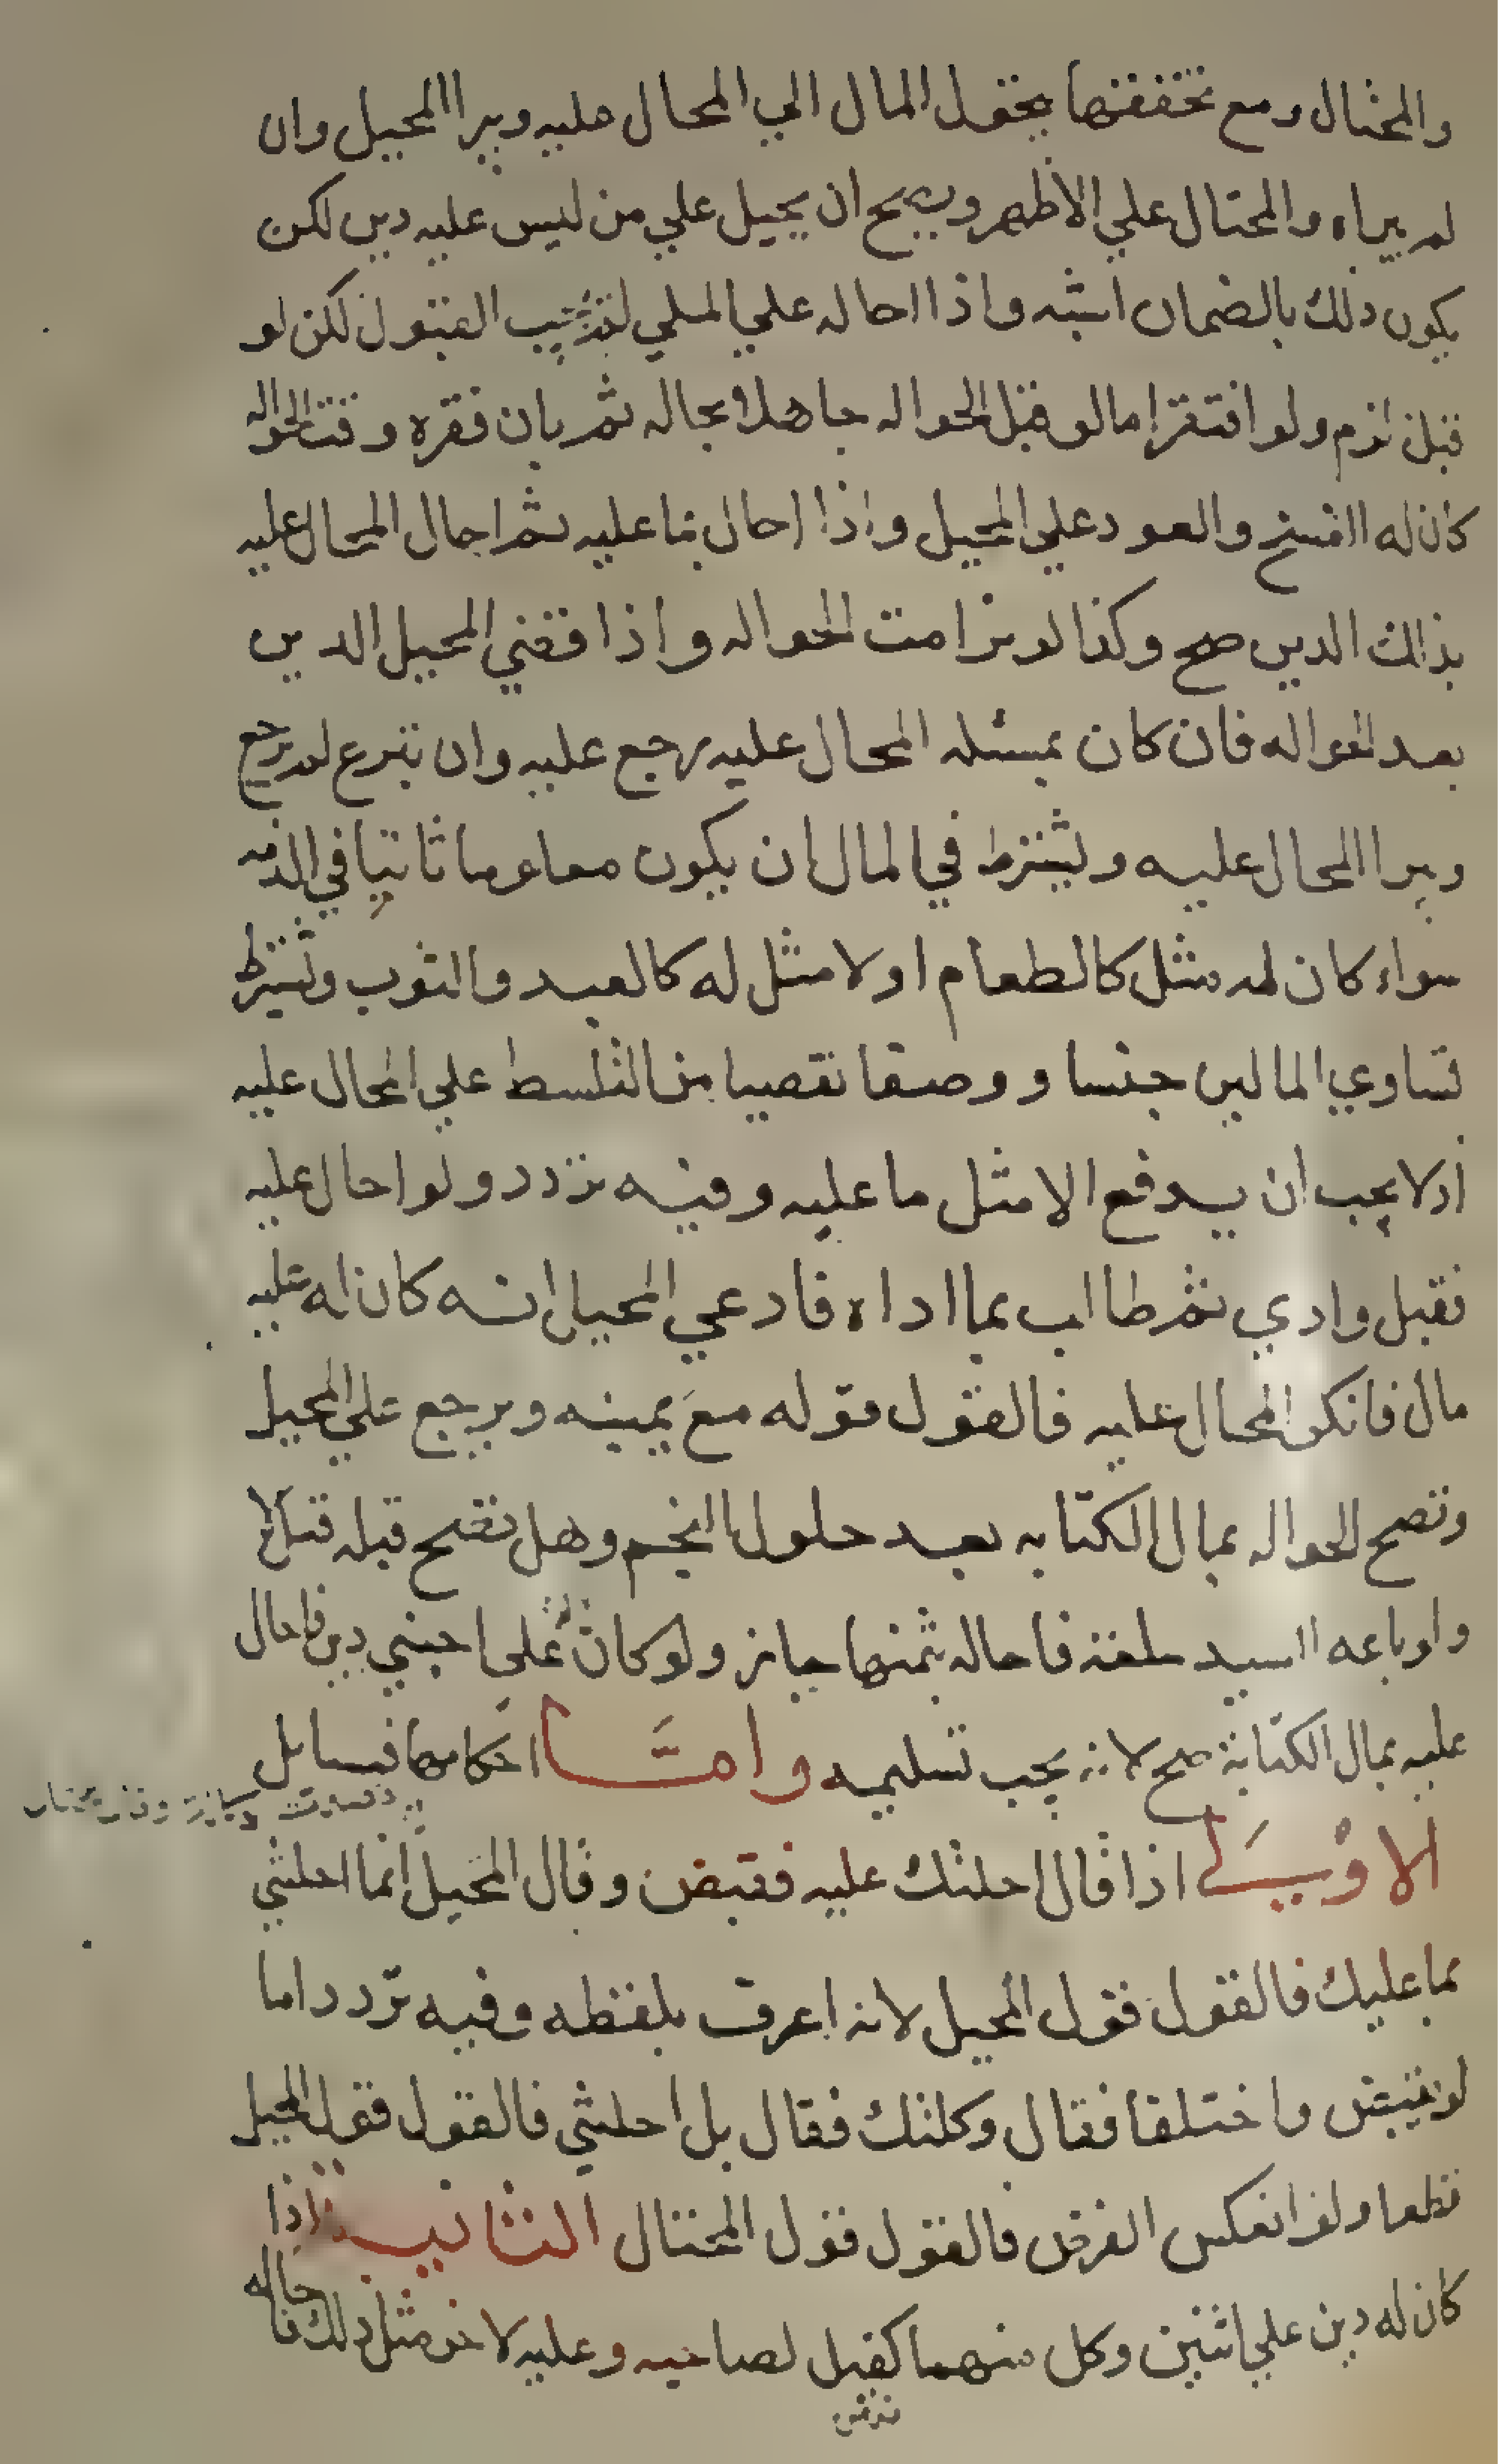 والمحتال ومع تحققها يتحول المال الي المحال عليه ويبرا المحيل وان
لم يبراه والمحتال علي الاظهر ويصح ان يحيل علي من ليس عليه دين لكن
يكون ذلك بالضمان اشبه واذا احاله علي الملي لم يجب القبول لكن لو
قبل لزم ولو افتقر اما لو قبل الحواله جاهلا بحاله ثم بان فقره وقت الحواله
كان له الفسخ والعود علي المحيل واذا احال بما عليه ثم احال المحال عليه
بذلك الدين صح وكذا لو ترامت الحواله واذا قضي المحيل الدين
بعد الحواله فان كان بمسئله المحال عليه رجع عليه وان تبرع لم يرجع
ويبرا المحال عليه ويشترط في المال ان يكون معلوما ثابتا في الذمه
سواء كان له مثل كالطعام او لا مثل له كالعبد والثوب ويشترط
تساوي المالين جنسا ووصفا تفصيا من التسلط علي المحال عليه
اذ لا يجب ان يدفع الا مثل ما عليه وفيه تردد ولو احال عليه
فقبل وادي ثم طالب بما اداه فادعي المحيل انه كان له عليه
مال فانكر المحال عليه فالقول قوله مع يمينه ويرجع علي المحيل
وتصح الحواله بمال الكتابه بعد حلول النجم وهل تصح قبله قيل لا
ولو باعه السيد سلعة فاحاله بثمنها جايز ولو كان له علي اجنبي دين فاحال
عليه بمال الكتابة صح لانه يجب تسليمه واما احكامها فمسايل
الاولي اذا قال احلتك عليه فقبض وقال المحيل انما احلتني
بما عليك فالقول قول المحيل لانه اعرف بلفظه وفيه تردد اما
لو لم يقبض واختلفا فقال وكلتك فقال بل احلتني فالقول قول المحيل
قطعا ولو انعكس الفرض فالقول قول المحتال الثانية اذا
كان له دين علي اثنين وكل منهما كفيل لصاحبه وعليه لاخر مثل ذلك فاحاله